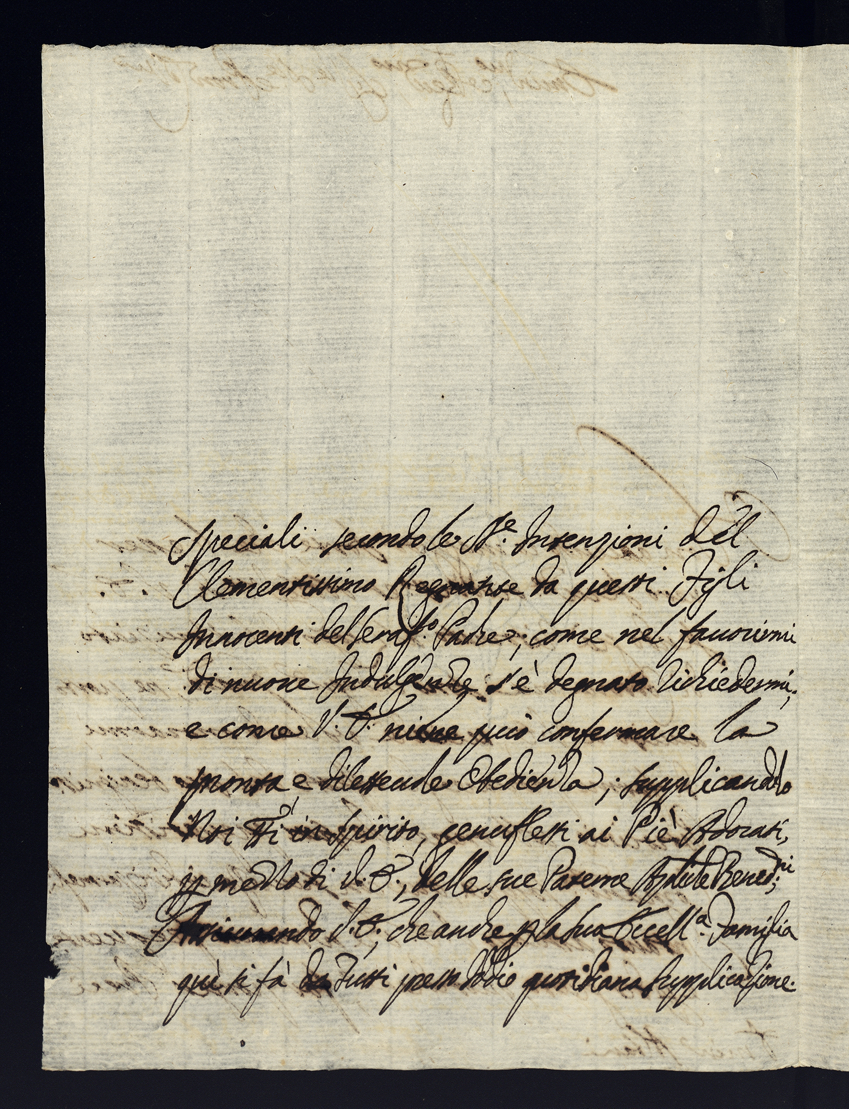 speciali secondo le S.te Intenzioni del
Clementissimo Regnante da questi Figli
Innocenti del Seraf.o Padre, come nel favorirmi
di nuove Indulgenze s'è degnato richiedermi,
e come V. E. può confermare la
pronta, e Obedienza; supplicando
Noi Tti in spirito, genuflessi ai Piè Adorati,
p mezzo di V. E., delle sue Paterne Bened.ni
Assicurando V. E., che anche p la sua Eccell.a Famiglia
qui si fà da Tutti presso Iddio quotidiana supplicazione.